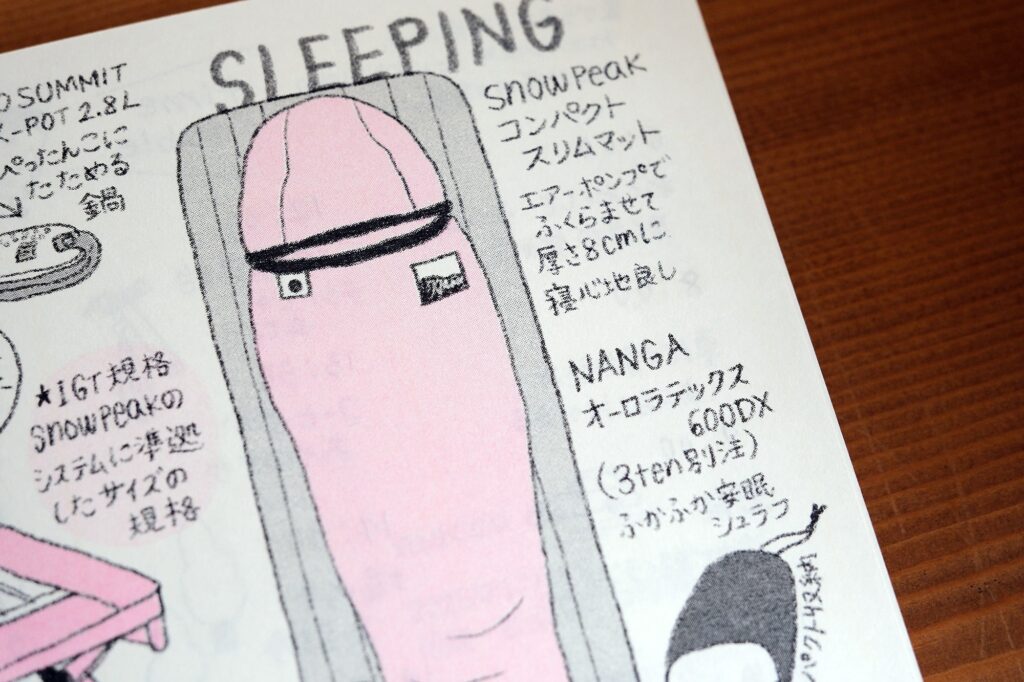 SLEEPING
O SUMMIT
X-POT 2.8L
ぺったんこに
たためる
鍋
★IGT規格
snowpeakの
システムに準拠
したサイズの
規格
snowpeak
コンパクト
スリムマット
エアーポンプで
ふくらませて
厚さ8cmに
寝心地良し
NANGA
オーロラテックス
600DX
(3ten別注)
ふかふか安眠
シュラフ